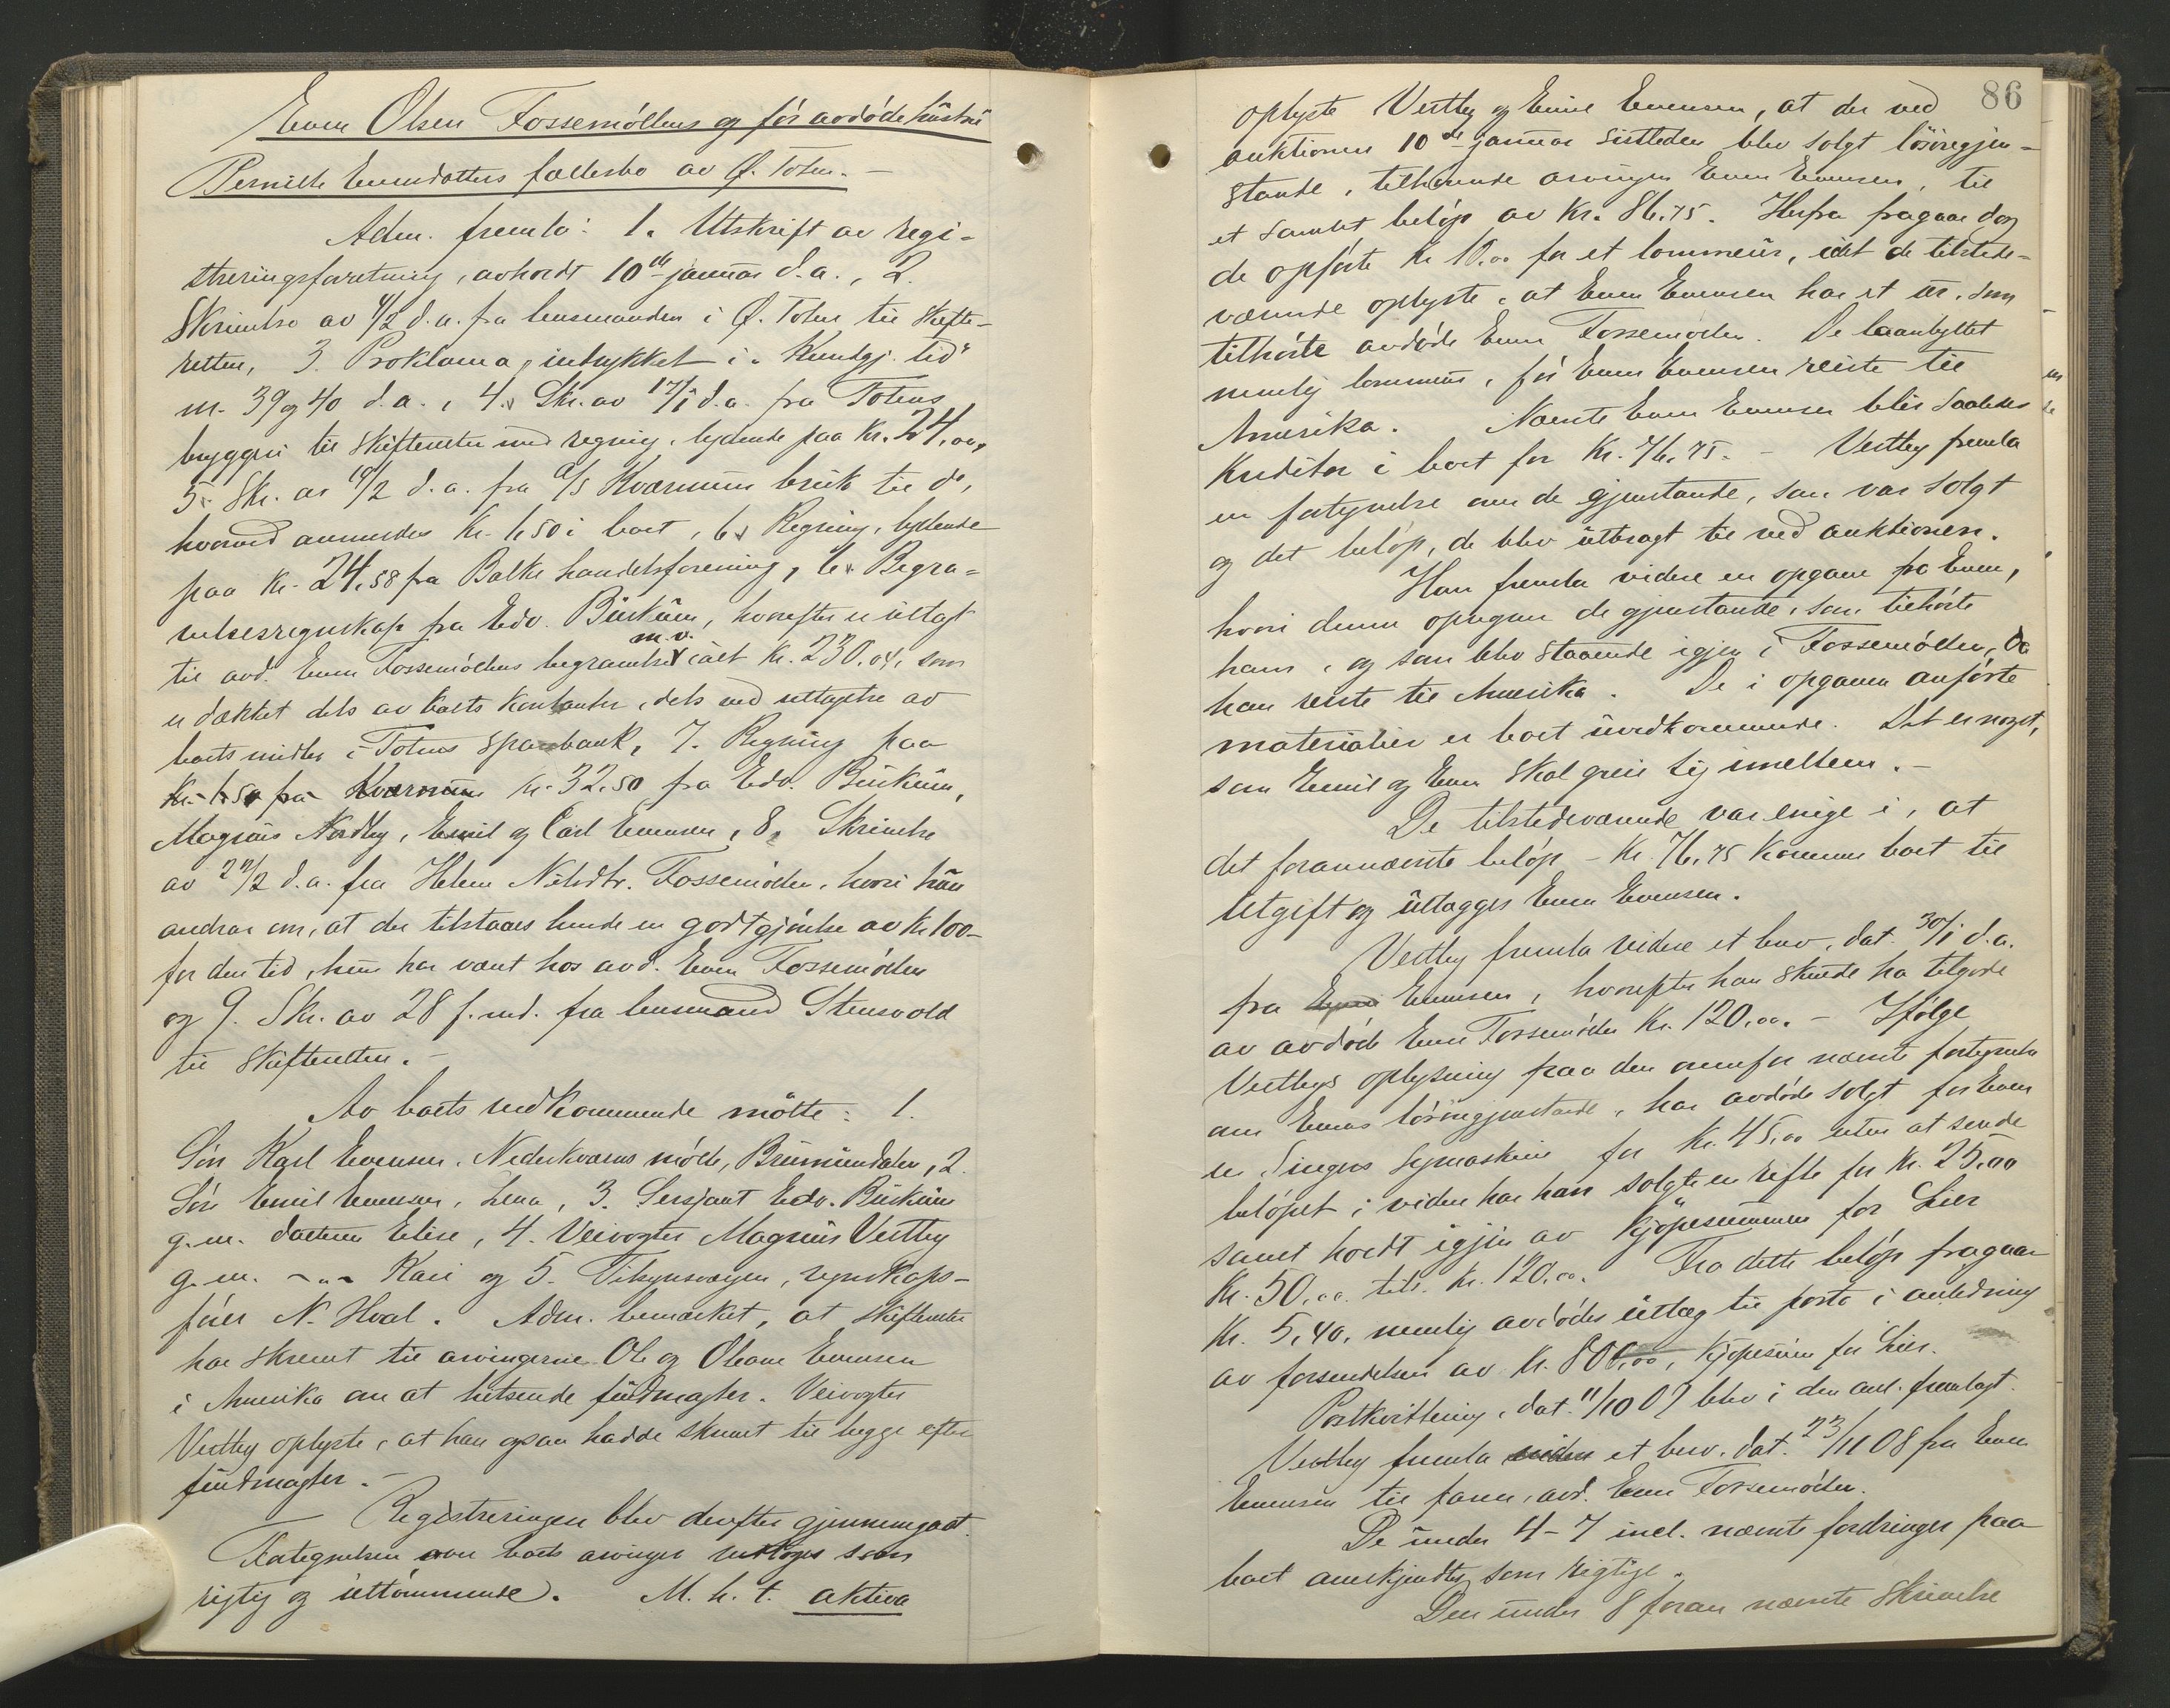 Even Olsen Fossemöllens og för avdöde hustru
Pernille Evensdatters fællesbo av Ø. Toten. -
Adm. fremla: 1. Utskrift av regi-
streringsforretning, avholdt 10de januar d.a., 2.
Skrivelse av 4/2 d.a. fra lensmanden i Ø. Toten til skifte-
retten, 3. Proklama, indrykket i "Kundgj. tid"
nr. 39 og 40 d.a., 4. Skr. av 17/1 d.a. fra Totens
bryggeri til skifteretten med regning, lydende paa Kr. 24,00,
5. Skr. av 10/2 d.a. fra A/S Kværnum bruk til do,
hvorved anmeldes Kr. 1,50 i boet, 6. Regning, lydende
paa Kr. 24,58 fra Balke handelsforening, 6. Begra-
velsesregnskap fra Edv. Burkum, hvorefter er uttagt
til avd. Even Fossemöllens begravelse m.v. ialt Kr. 230,04, som
er dækket dels av boets kontanter, dels ved uttagelse av
boets midler i Totens sparebank, 7. Regning paa
Kr. 1,50 fra Kværnum Kr. 32,50 fra Edv. Burkum,
Magnus Nordby, Emil og Carl Evensen, 8. Skrivelse
av 22/2 d.a. fra Helene Nilsdtr. Fossemöllen, hvori hun
andrar om, at der tilstaaes hende en godtgjörelse av Kr. 100-
for den tid, hun har vært hos avd. Even Fossemöllen
og 9. Skr. av 28 f. md. fra lensmand Stensvold
til skifteretten. -
Av boets vedkommende mötte: 1.
Sön Karl Evensen, Nederkværns mölle, Brumunddalen, 2.
Sön Emil Evensen, Lena, 3. Sersjant Edv. Burkum
g.m. datteren Elise, 4. Veivogter Magnus Vestby
g.m. -"- Kari og 5. Tilsynsvergen, regnskaps-
förer N. Hval. Adm. bemerket, at skifteretten
har skrevet til arvingerne Ole og Oleane Evensen
i Amerika om at hitsende fuldmagter. Veivogter
Vestby oplyste, at han ogsaa hadde skrevet til begge efter
fuldmagter. -
Registreringen blev derefter gjennemgaat.
Fortegnelsen over boets arvinger vedtoges som
rigtig og uttömmende. M. h. t. aktiva
86
oplyste Vestby og Emil Evensen, at der ved
auktionen 10de januar sistleden blev solgt lösöregjen-
stande, tilhörende arvingen Even Evensen, til
et samlet belöp av Kr. 86,75. Herfra fragaar dog
de opförte Kr. 10,00 for et lommeur, idet de tilstede-
værende oplyste, at Even Evensen har et ur, som
tilhörte avdöde Even Fossemöllen. De laanbyttet
nemlig lommeur, för Even Evensen reiste til
Amerika. Nævnte Even Evensen blir saaledes
Kreditor i boet for Kr. 76,75. - Vestby fremla
en fortegnelse over de gjenstande, som var solgt
og det belöp, de blev utbragt til ved auktionen.
Han fremla videre en opgave fra Even,
hvori denne opregner de gjenstande, som tilhörte
ham, og som blev staaende igjen i Fossemöllen, da
han reiste til Amerika. De i opgaven anförte
materialier er boet uvedkommende. Det er noget,
som Emil og Even skal greie sig imellem. -
De tilstedeværende var enige i, at
det forannævnte belöp - Kr. 76,75 kommer boet til
utgift og utlægges Even Evensen.
Vestby fremla videre et brev, dat. 30/1 d.a.
fra Evensen, hvorefter han skulde ha tilgode
av avdöde Even Fossemöllen Kr. 120,00. - Ifölge
Vestbys oplysning paa den ovenfor nævnte fortegnelse
over Evens lösöregjenstande, har avdöde solgt for Even
en Singers symaskine for Kr. 45,00 uten at sende
belöpet, videre har han solgt en rifle for Kr. 25,00
samt holdt igjen av kjöpesummen for Lier
Kr. 50,00. tils. Kr. 120,00. Fra dette belöp fragaar
Kr. 5,40, nemlig avdödes utlæg til porto i anledning
av forsendelsen av Kr. 800,00, kjöpesum for Lier.
Postkvittering, dat. 11/10 07 blev i den anl. fremlagt.
Vestby fremla et brev, dat. 23/11 08 fra Even
Evensen til faren, avd. Even Fossemöllen.
De under 4-7 incl. nævnte fordringer paa
boet anerkjendtes som rigtige.
Den under 8 foran nævnte skrivelse